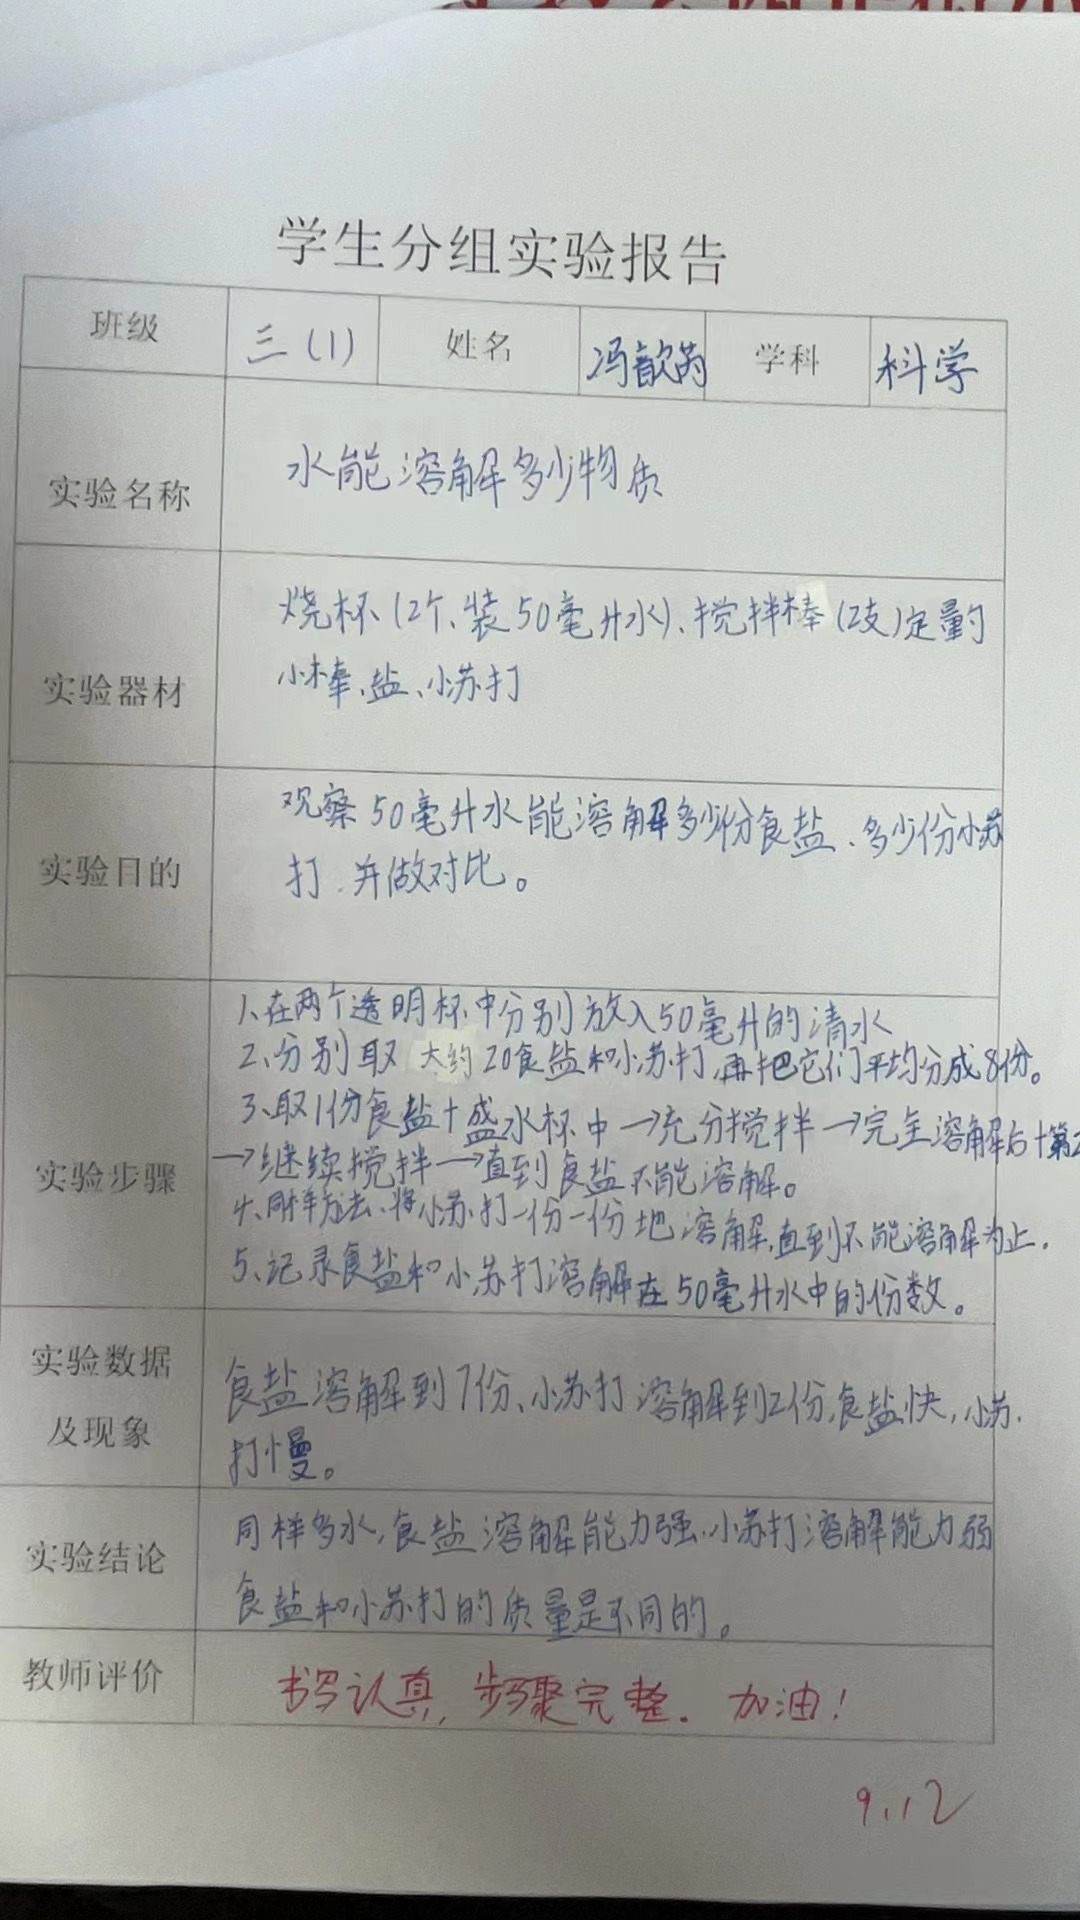 学生分组实验报告
班级 三(1) 姓名 冯歆芮 学科 科学
实验名称 水能溶解多少物质
实验器材
烧杯(2个、装50毫升水)、搅拌棒(2支)定量的
小棒、盐、小苏打
实验目的
观察50毫升水能溶解多少份食盐、多少份小苏
打、并做对比。
实验步骤
1、在两个透明杯中分别放入50毫升的清水
2、分别取大约20食盐和小苏打,再把它们平均分成8份。
3、取1份食盐+盛水杯中→充分搅拌→完全溶解后+第2
→继续搅拌→直到食盐不能溶解。
4、同样方法、将小苏打一份一份地溶解,直到不能溶解为止.
5、记录食盐和小苏打溶解在50毫升水中的份数。
实验数据
及现象
食盐溶解到7份、小苏打溶解到2份,食盐快,小苏
打慢。
实验结论
同样多水,食盐溶解能力强.小苏打溶解能力弱
食盐和小苏打的质量是不同的。
教师评价 书写认真,步骤完整.加油!
9.12